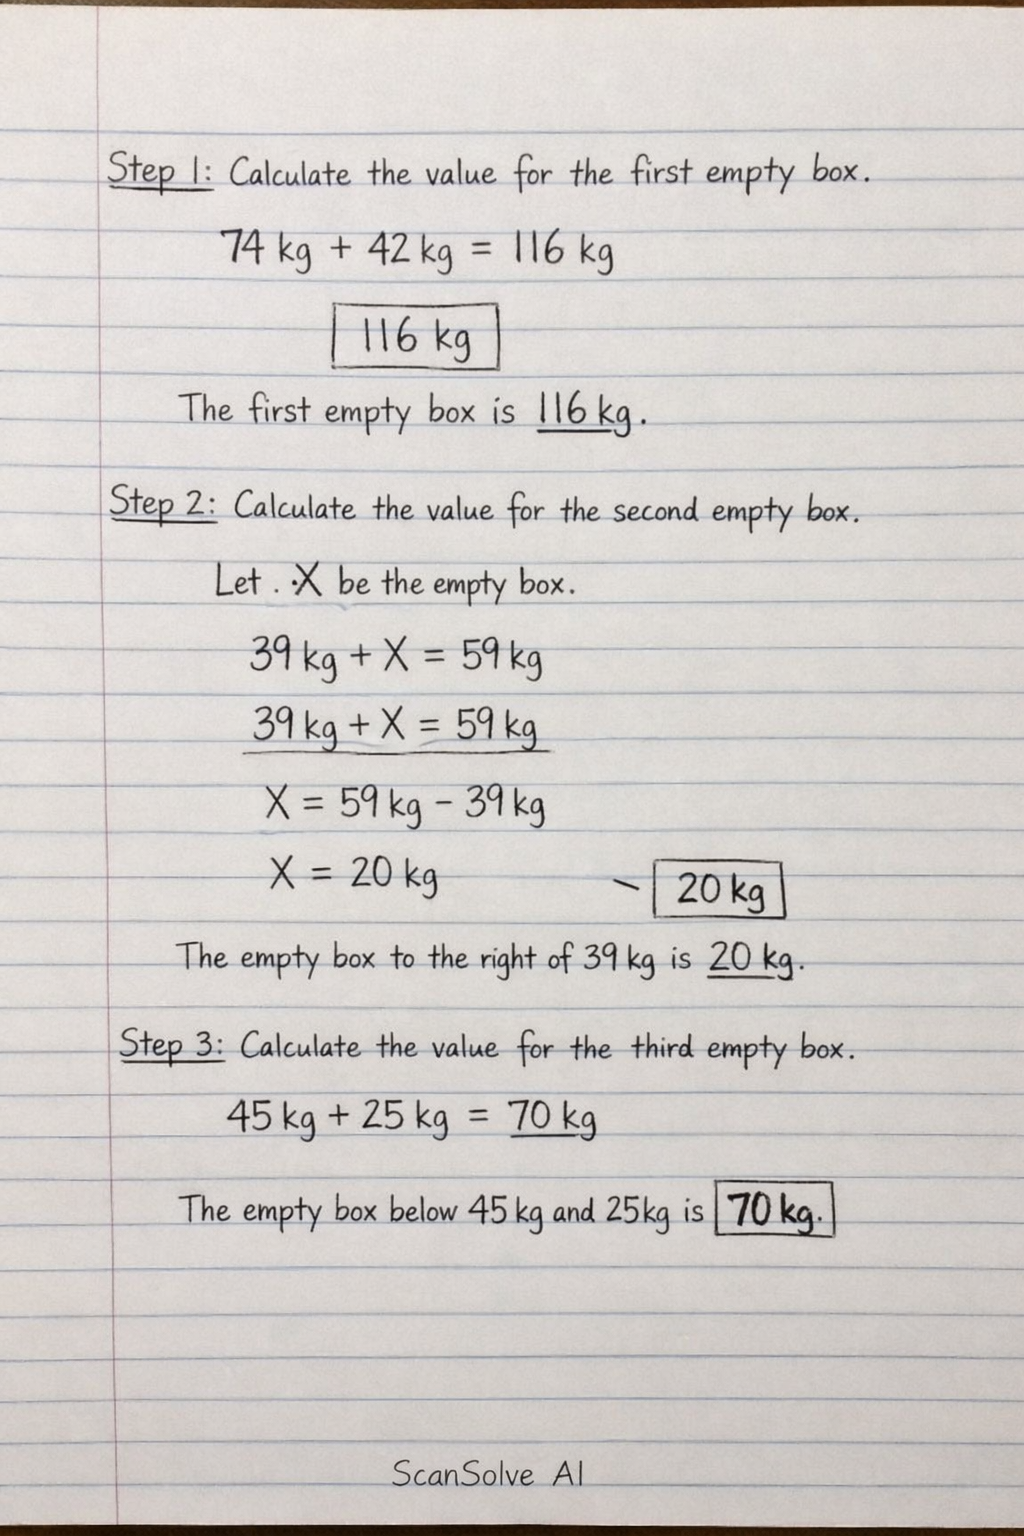 Step 1: Calculate the value for the first empty box.
74 kg + 42 kg = 116 kg
116 kg
The first empty box is 116 kg.
Step 2: Calculate the value for the second empty box.
Let . ·X be the empty box.
39 kg + X = 59 kg
39 kg + X = 59 kg
X = 59 kg - 39 kg
X = 20 kg
20 kg
The empty box to the right of 39 kg is 20 kg.
Step 3: Calculate the value for the third empty box.
45 kg + 25 kg = 70 kg
The empty box below 45 kg and 25kg is 70 kg.
ScanSolve AI